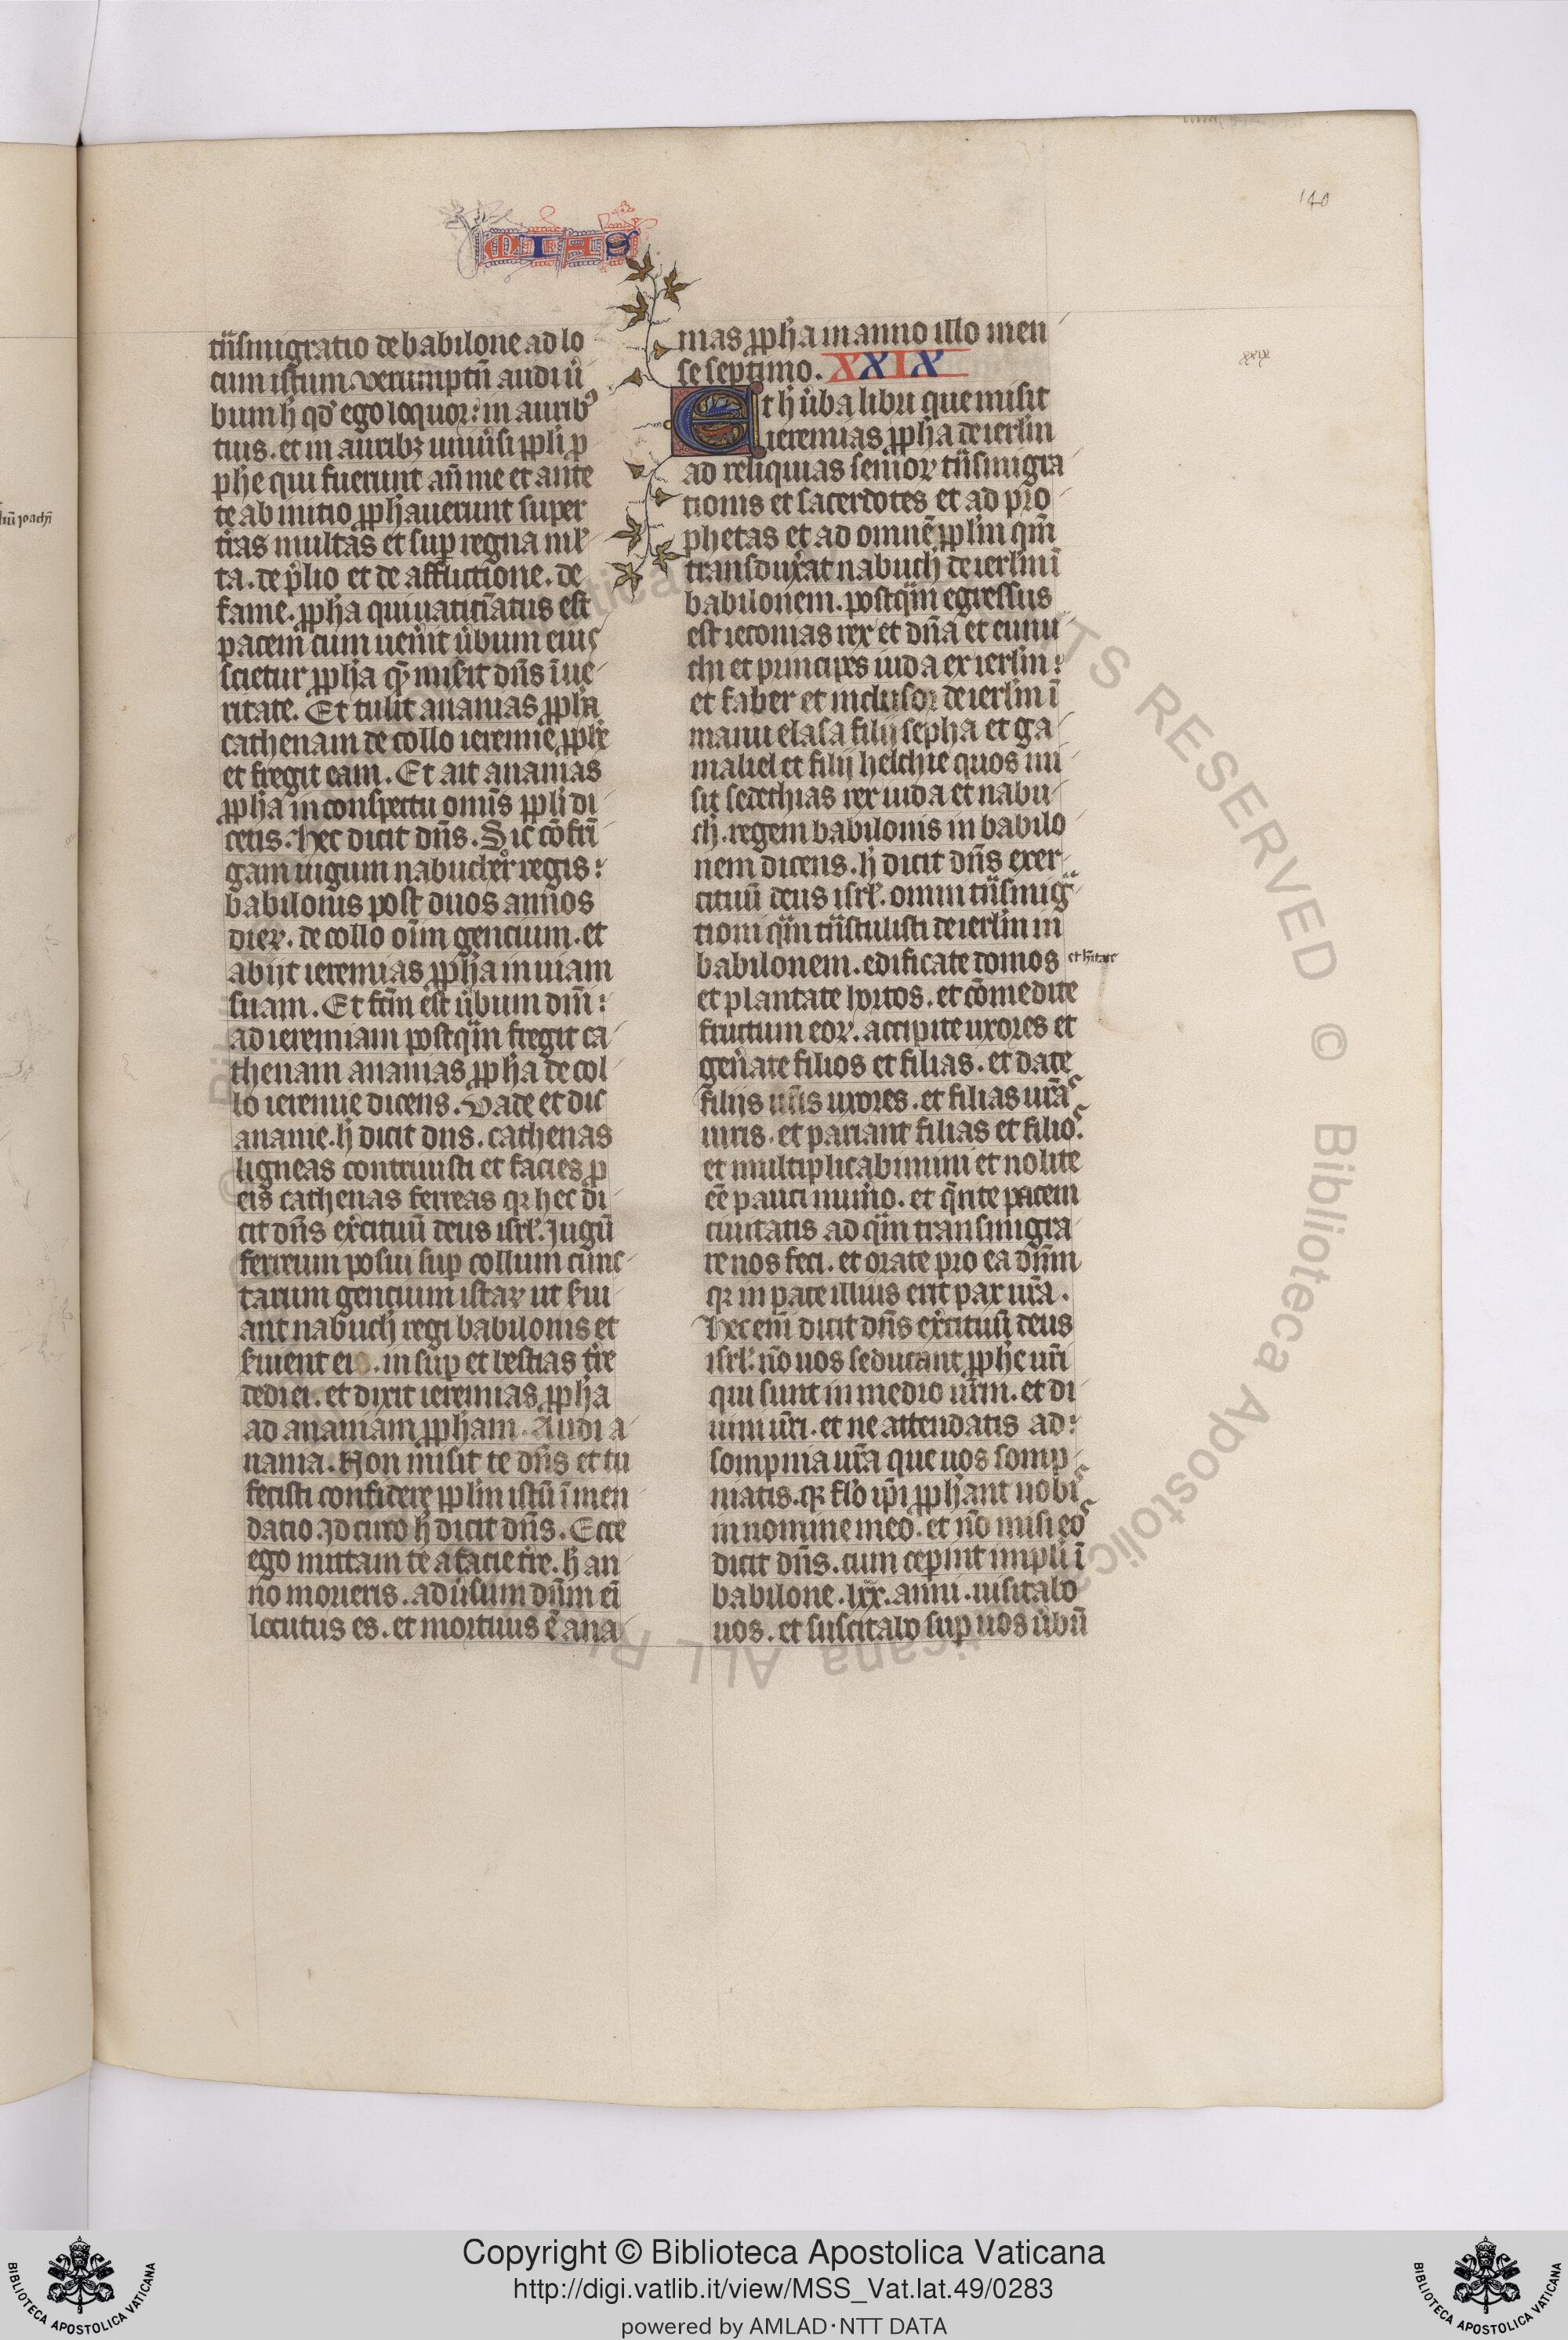 140
MIAS
tͥnsmigratio de babilone ad lo
cum istum. verumptn̄ audi ů
bum h̄ qd̓ ego loquor: in aurib⁹
tuis. et in auribꝫ uniůsi ppl̓i ꝓ
phe qui fuerunt an̄ me et ante
te ab initio ꝓph̓auerunt super
tr̓as multas et suꝑ regna ml̓
ta. de p̓lio et de afflictione. de
fame. ꝓph̓a qui uaticīatus est
pacem cum uen̓it ůbum eius
scietur ꝓph̓a qͫ misit dn̄s ī ue
ritate. Et tulit ananias ꝓph̓a
cathenam de collo ieremie ꝓph̓e
et fregit eam. Et ait ananias
ꝓph̓a in conspectu omīs ppl̓i di
cens. Hec dicit dn̄s. Sic cōfrī
gam iugum nabuchoꝝ regis:
babilonis post duos annos
dieꝝ. de collo oīm gencium. et
abijt ieremias ꝓph̓a in uiam
suam. Et fc̄m est ůbum dn̄i:
ad ieremiam postqͣm fregit ca
thenam ananias ꝓph̓a de col
lo ieremie dicens. Vade et dic
ananie. h̄ dicit dn̄s. cathenas
ligneas contriuisti et facies ꝓ
eis cathenas ferreas qꝛ hec di
cit dn̄s ex̓cituū deus isrl̓. Jugū
ferreum posui suꝑ collum cunc
tarum gencium istaꝝ ut s̓ui
ant nabuch̓ regi babilonis et
s̓uient ei. in suꝑ et bestias tr̓e
dedi ei. et dixit ieremias ꝓph̓a
ad ananiam ꝓph̓am. Audi a
nania. Non misit te dn̄s et tu
fecisti confidere ppl̓m istū ī men
dacio. Jdcirco h̄ dicit dn̄s. Ecce
ego mittam te a facie tr̓e. h̄ an
no morieris. ad ůsum dn̄m eī
locutus es. et mortuus ē ana
nias ꝓph̓a in anno illo men
se septimo. XXIX
xxix
Et h̄ ůba libri que misit
ieremias ꝓph̓a de ierl̓m
ad reliquias senioꝝ tͥnsmigra
tionis et sacerdotes et ad pro
phetas et ad omnē ppl̓m qͫ
transdux̓at nabuch̓ de ierl̓m ī
babilonem. postqͣm egressus
est ieconias rex et dn̄a et eunu
chi et principes iuda ex ierl̓m:
et faber et inclusor de ierl̓m ī
manu elasa filij sepha et ga
maliel et filij helchie quos mi
sit sedechias rex iuda et nabu
ch̓. regem babilonis in babilo
nem dicens. h̄ dicit dn̄s exer
cituū deus isrl̓. omni tͥnsmigͣ
tioni qͣm tͥnstulisti de ierl̓m in
babilonem. edificate domos
et h̓itate
et plantate hortos. et cōmedite
fructum eoꝝ. accipite uxores et
gen̓ate filios et filias. et date
filijs ur̄is uxores. et filias ur̄as
uiris. et pariant filias et filios.
et multiplicabimini et nolite
eē pauci num̓o. et qͣr̄ite pacem
ciuitatis ad qͣm transmigra
re uos feci. et orate pro ea dn̄m
qꝛ in pace illius erit pax ur̄a.
Hec enī dicit dn̄s ex̓cituū deus
isrl̓. nō uos seducant ꝓph̓e ur̄i
qui sunt in medio ur̄m. et di
uini ur̄i. et ne attendatis ad:
sompnia ur̄a que uos somp
niatis. qꝛ fl̓o ip̄i ꝓph̓ant uobis
in nomine meo. et nō misi eos
dicit dn̄s. cum cep̓int impl̓i ī
babilone .lxx. anni. uisitabo
uos. et suscitabo suꝑ uos ůbū
© Biblioteca Apostolica Vaticana ALL RIGHTS RESERVED
Copyright © Biblioteca Apostolica Vaticana
http://digi.vatlib.it/view/MSS_Vat.lat.49/0283
powered by AMLAD·NTT DATA
BIBLIOTECA APOSTOLICA VATICANA
BIBLIOTECA APOSTOLICA VATICANA